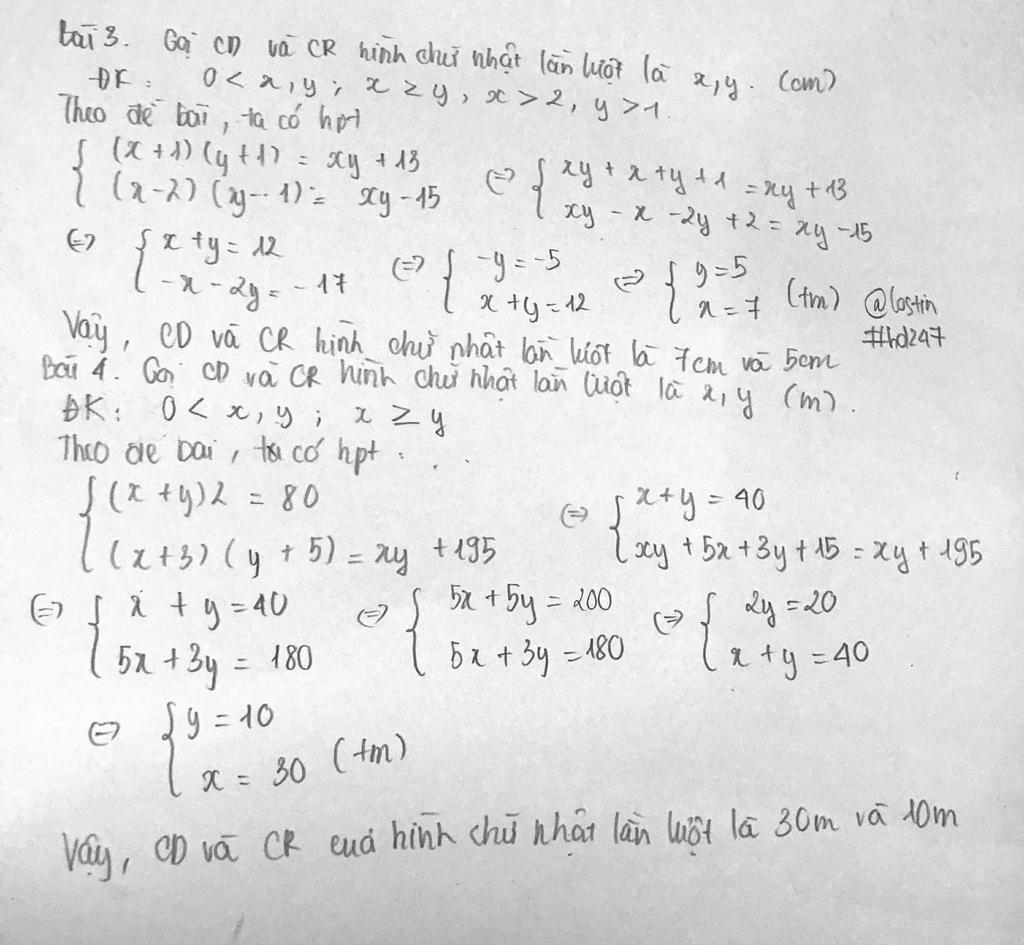 bài 3. Gọi CD và CR hình chữ nhật lần lượt là x,y. (cm)
ĐK: 0 < x,y ; x ≥ y, x > 2, y > 1
Theo đề bài, ta có hpt
{ (x+1)(y+1) = xy + 13 ⇔ { xy + x + y + 1 = xy + 13
(x-2)(y-1) = xy - 15 xy - x - 2y + 2 = xy - 15
⇔ { x + y = 12 ⇔ { -y = -5 ⇔ { y = 5
-x - 2y = -17 x + y = 12 x = 7 (tm) @lostin
#hd247
Vậy, CD và CR hình chữ nhật lần lượt là 7cm và 5cm
Bài 4. Gọi CD và CR hình chữ nhật lần lượt là x,y (m).
ĐK: 0 < x, y ; x ≥ y
Theo đề bài, ta có hpt :
{ (x + y)2 = 80 ⇔ { x + y = 40
(x+3)(y + 5) = xy + 195 xy + 5x + 3y + 15 = xy + 195
⇔ { x + y = 40 ⇔ { 5x + 5y = 200 ⇔ { 2y = 20
5x + 3y = 180 5x + 3y = 180 x + y = 40
⇔ { y = 10
x = 30 (tm)
Vậy, CD và CR cuả hình chữ nhật lần lượt là 30m và 10m